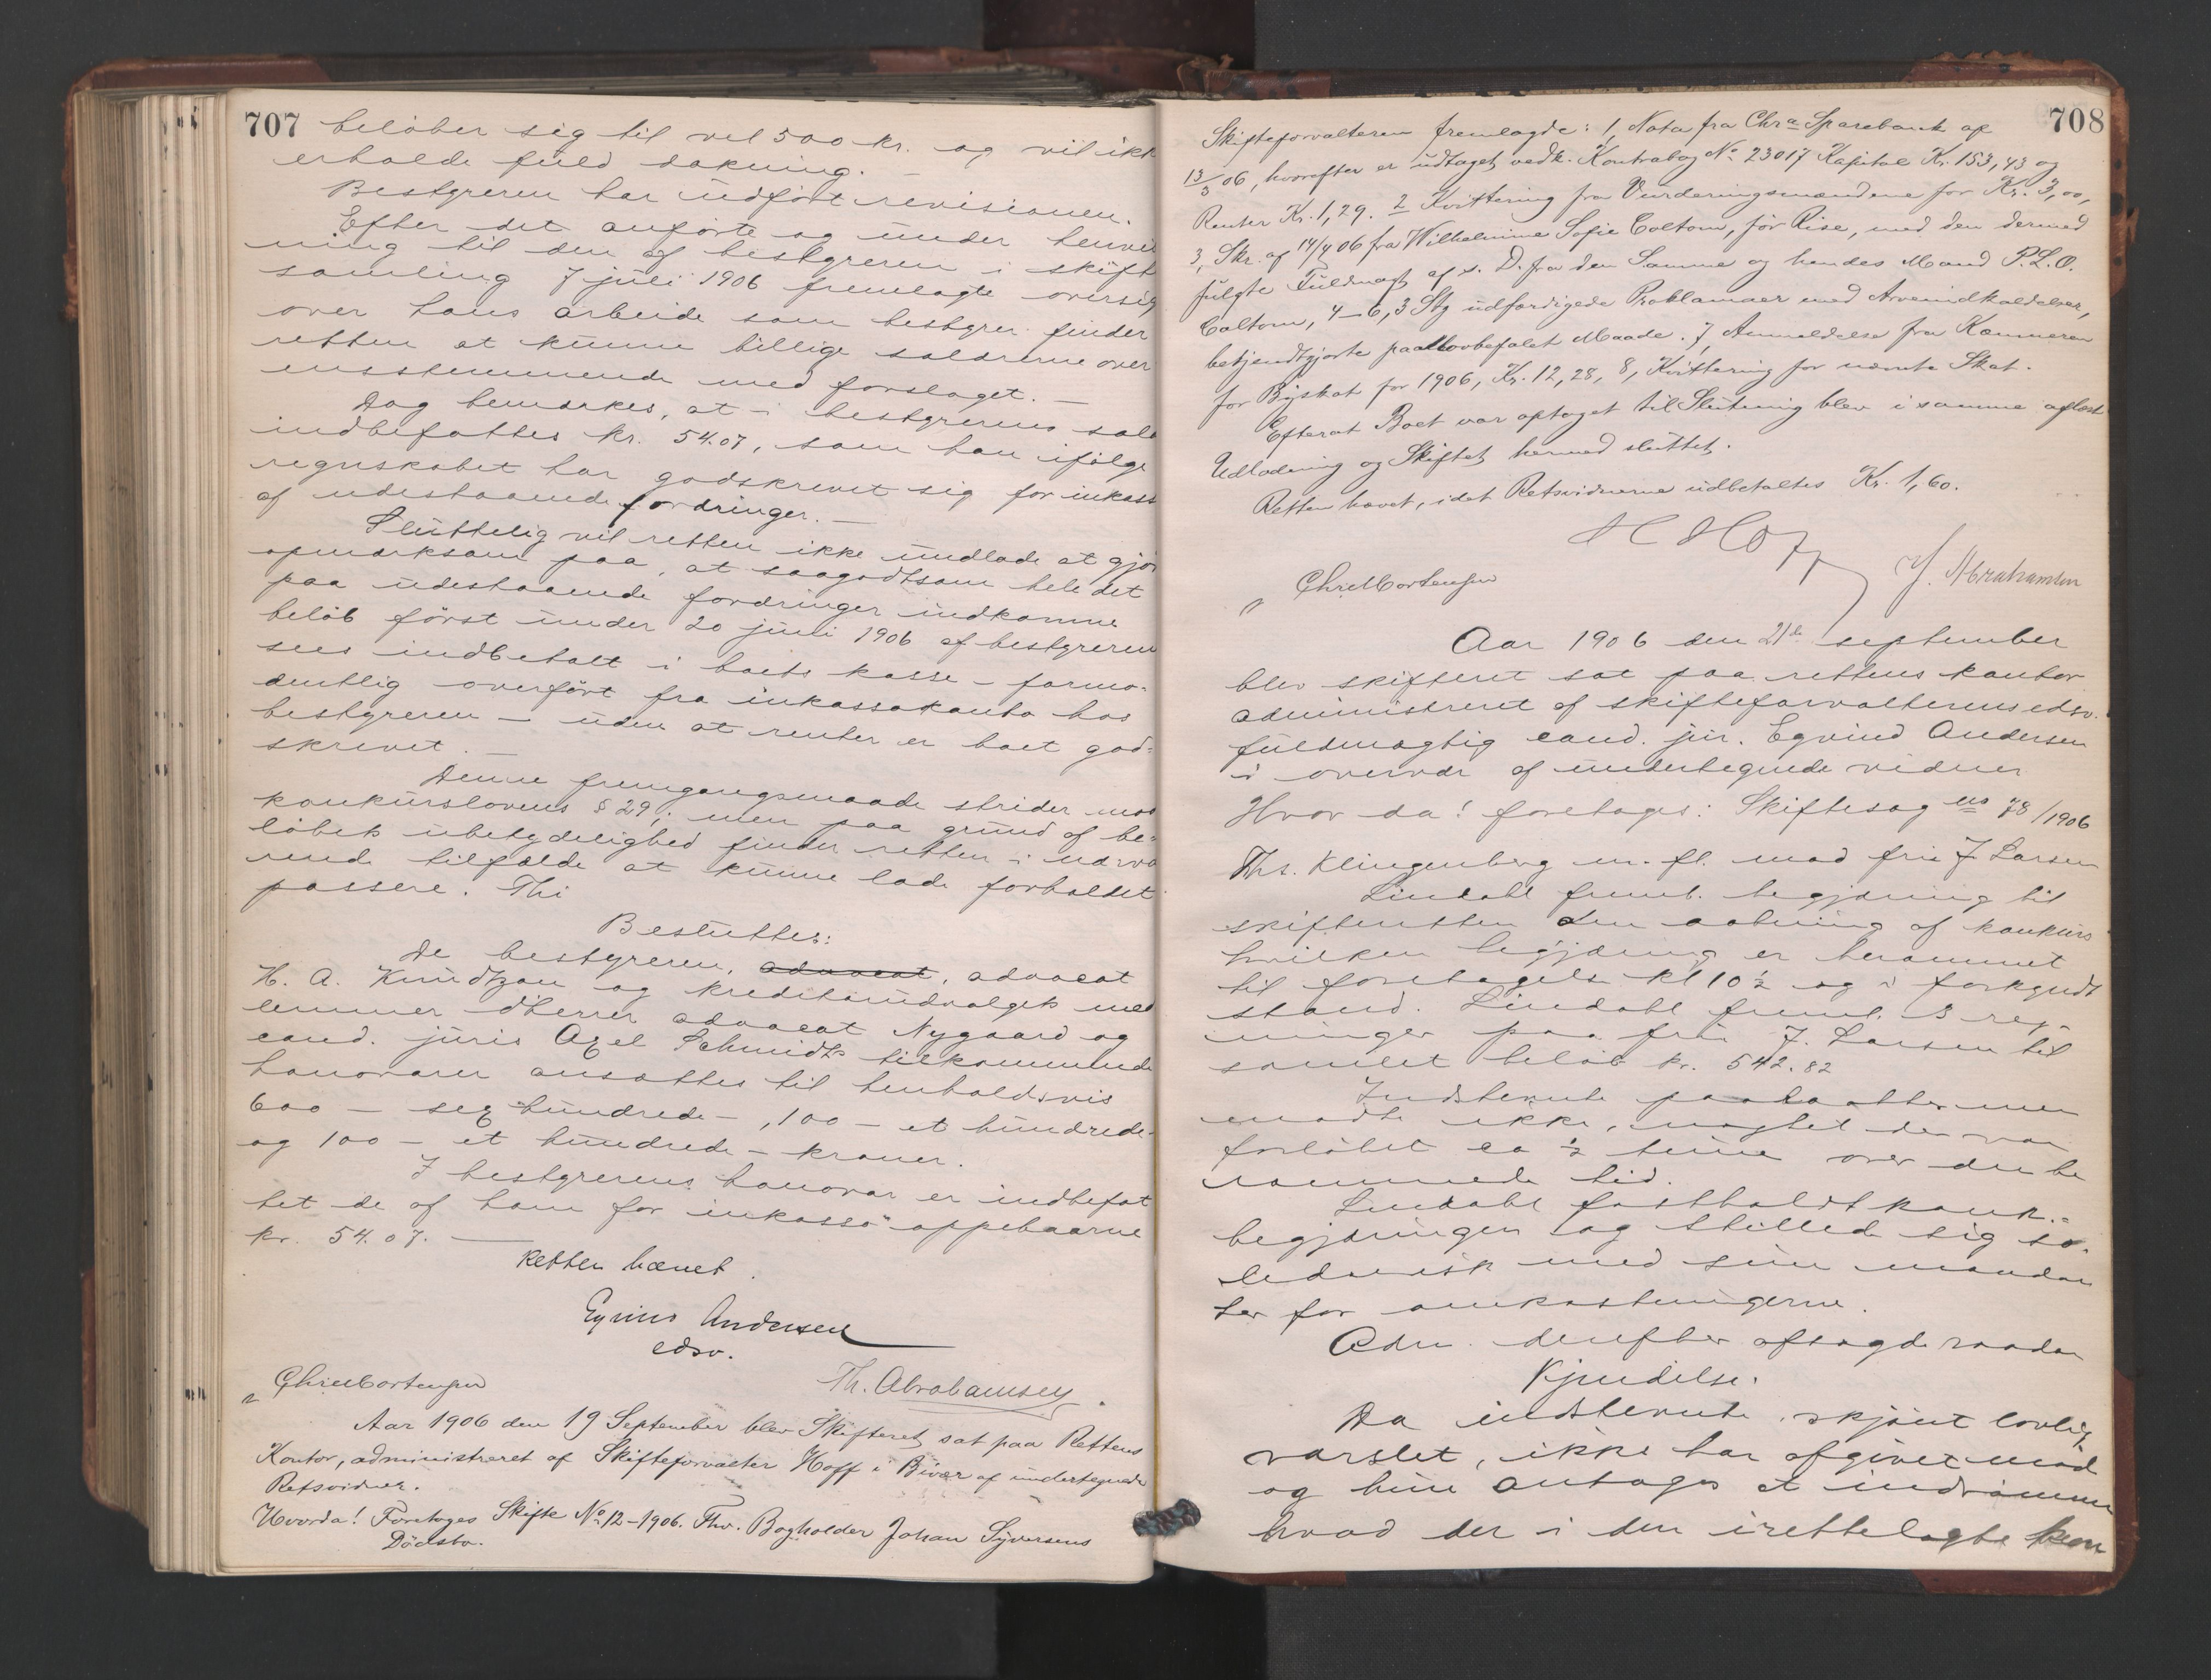 707
beløber sig til vel 500 kr. og vil ikk
erholde fuld dækning. —
Bestyreren har udført revisionen.
Efter det anførte og under henvis
ning til den af bestyreren i skift
samling 7 juli 1906 fremlagte oversig
over hans arbeide som bestyrer finder
retten at kunne billige salærerne over
ensstemmende med forslaget. —
Dog bemærkes, at i bestyrerens sal
indbefattes kr. 54.07, som han ifølge
regnskabet har godskrevet sig for inkass
af udestaaende fordringer. —
Sluttelig vil retten ikke undlade at gjør
opmærksom paa, at saagodtsom hele det
paa udestaaende fordringer indkomne
beløb først under 20 juli 1906 af bestyreren
sees indbetalt i boets kasse – formo-
dentlig overført fra inkassokonto hos
bestyreren – uden at renter er boet god-
skrevet. —
Denne fremgangsmaade strider mod
konkurslovens § 29; men paa grund af be-
løbets ubetydelighed finder retten i nærvæ
rende tilfælde at kunne lade forholdet
passere. Thi
Besluttes:
De bestyreren, advocat, advocat
H. A. Knudtzon og kreditorudvalgets med
lemmer dherrer advocat Nygaard og
cand. juris Axel Schmidts tilkommende
honorarer ansættes til henholdsvis
600 – sex hundrede –, 100 – et hundrede –
og 100 – et hundrede – kroner.
I bestyrerens honorar er indbefat
tet de af ham for inkasso oppebaarne
kr. 54.07. —
Retten hævet.
Eyvind Andersen
edsv.
Chr Mortensen
Th. Abrahamsen.
Aar 1906 den 19 September blev Skifteret sat paa Rettens
Kontor, administreret af Skifteforvalter Hoff i Bivær af undertegnede
Retsvidner.
Hvorda! Foretoges Skifte No 12-1906. Fhv. Bogholder Johan Syversens
Dödsbo.
708
Skifteforvalteren fremlagde: 1, Nota fra Chra Sparebank af
13/3 06, hvorefter er udtaget vedk. Kontrabog No 23017 Kapital Kr. 153,43 og
Renter Kr. 1,29. 2 Kvittering fra Vurderingsmændene for Kr. 3,00,
3, Skr. af 14/4 06 fra Wilhelmine Sofie Coltom, før Rise, med den dermed
fulgte Fuldmagt af s. D. fra den Samme og hendes Mand P.L.O.
Coltom, 4–6, 3 Stk udfærdigede Proklamaer med Arveindkaldelser,
bekjendtgjorte paa lovbefalet Maade. 7, Anmeldelse fra Kæmneren
for Byskat for 1906, Kr. 12,28, 8, Kvittering for nævnte Skat.
Efterat Boet var optaget til Slutning blev i samme aflæst
Udlodning og Skiftet hermed sluttet.
Retten hævet, idet Retsvidnerne udbetaltes Kr. 1,60.
H Hoff
Chr Mortensen
J. Abrahamsen
Aar 1906 den 21de september
blev skifteret sat paa rettens kontor
administreret af skifteforvalterens edsv.
fuldmægtig cand. jur. Eyvind Andersen
i overvær af undertegnede vidner
Hvor da! foretages: Skiftesag no 78/1906
Ths. Klingenberg m. fl. mod fru J Larsen
Lindahl freml. begjæring til
skifteretten om aabning af konkurs
hvilken begjæring er berammet
til foretagelse kl 10 ½ og i forkyndt
stand. Lindahl freml. 3 reg-
ninger paa fru J. Larsen til
samlet beløb kr. 542.82
Indstevnte paaraabtes men
mødte ikke, uagtet der var
forløbet ca ½ time over den be
rammede tid.
Lindahl fastholdt konk.-
begjæringen og stillede sig so-
lidarisk med sine mandan
ter for omkostningerne.
Adm. derefter afsagde saadan
Kjendelse.
Da indstevnte, skjønt lovlig
varslet, ikke har afgivet møde
og hun antages at indrømme
hvad der i den irettelagte kon